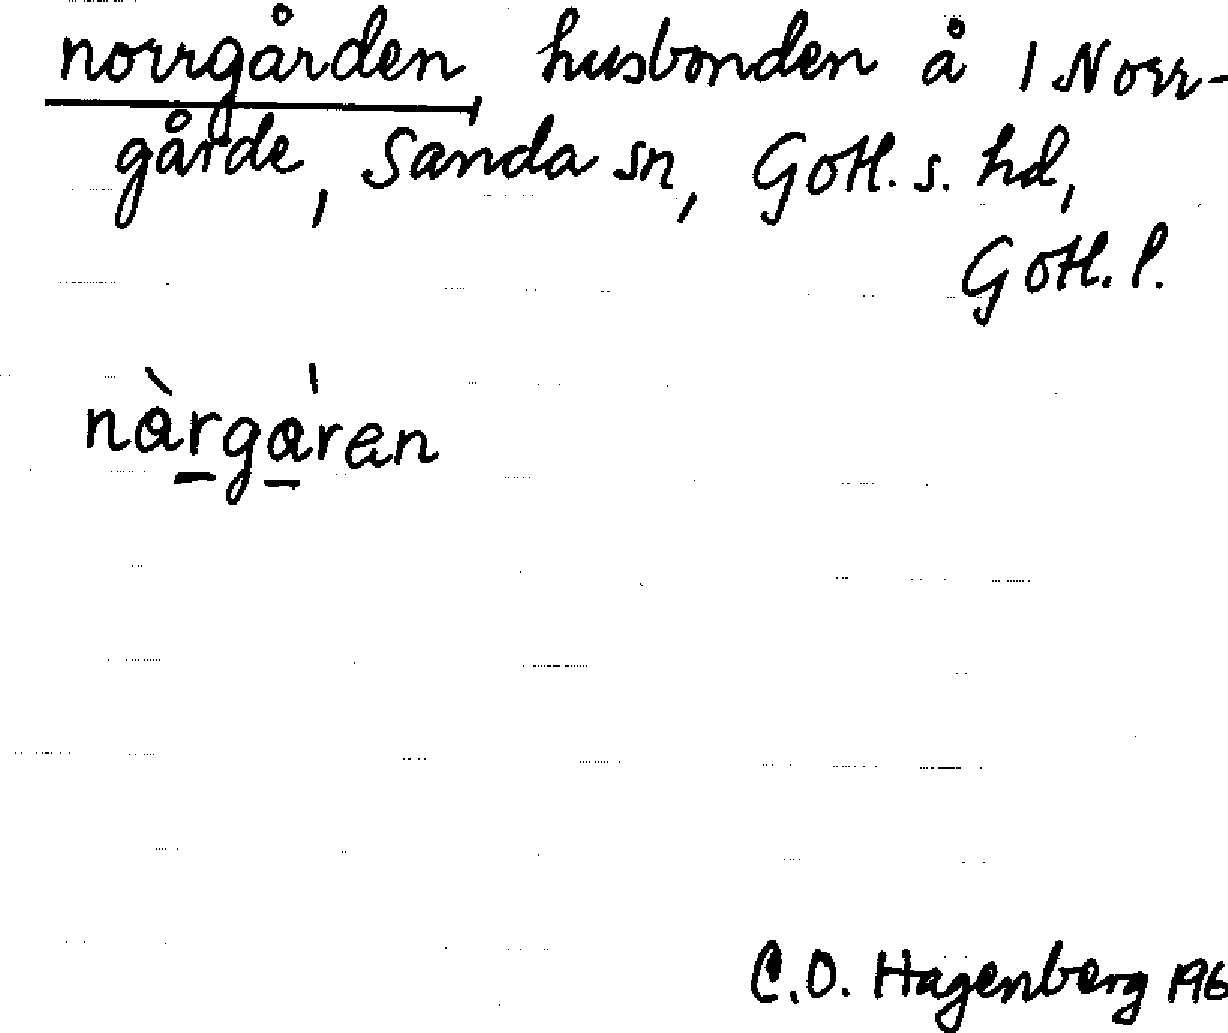 norrgården husbonden å 1 Norr-
gårde, Sanda sn, Gotl. s. hd,
Gotl. l.
nàrgáren
C.O. Hagenberg